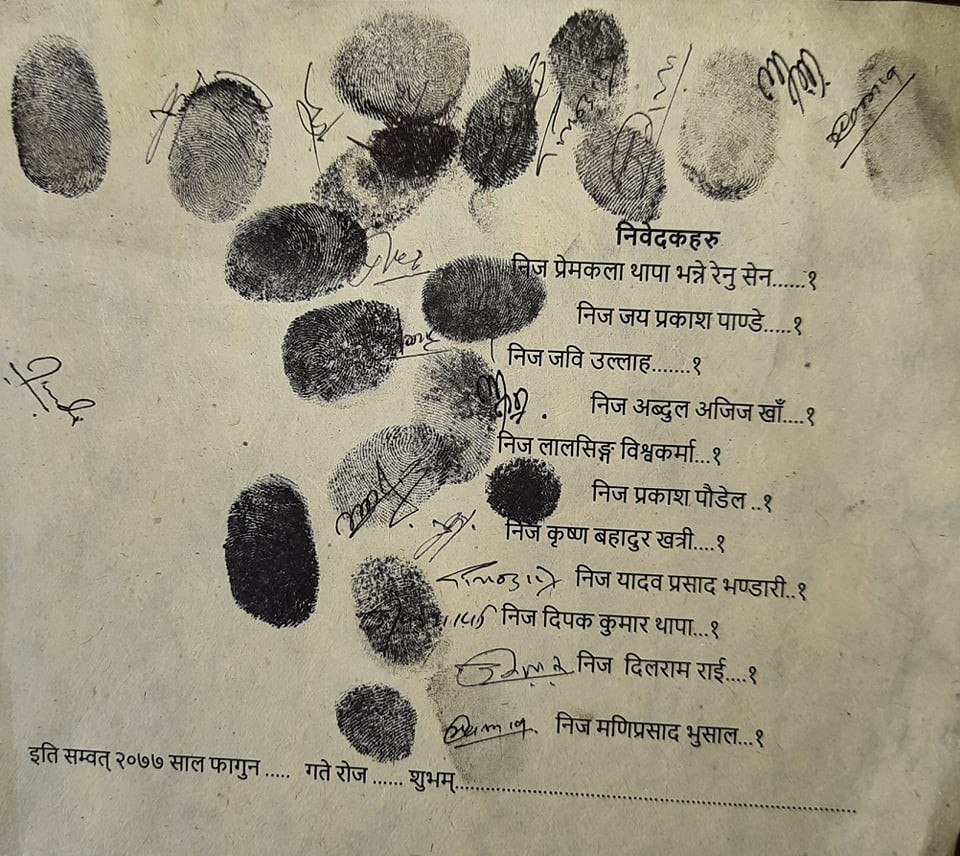 निवेदकहरु
निज प्रेमकला थापा भन्ने रेनु सेन......१
निज जय प्रकाश पाण्डे.....१
निज जवि उल्लाह.......१
निज अब्दुल अजिज खाँ....१
निज लालसिङ्ग विश्वकर्मा...१
निज प्रकाश पौडेल ..१
निज कृष्ण बहादुर खत्री....१
निज यादव प्रसाद भण्डारी..१
निज दिपक कुमार थापा...१
निज दिलराम राई....१
निज मणिप्रसाद भुसाल...१
इति सम्वत् २०७७ साल फागुन ..... गते रोज ...... शुभम्..............................................................